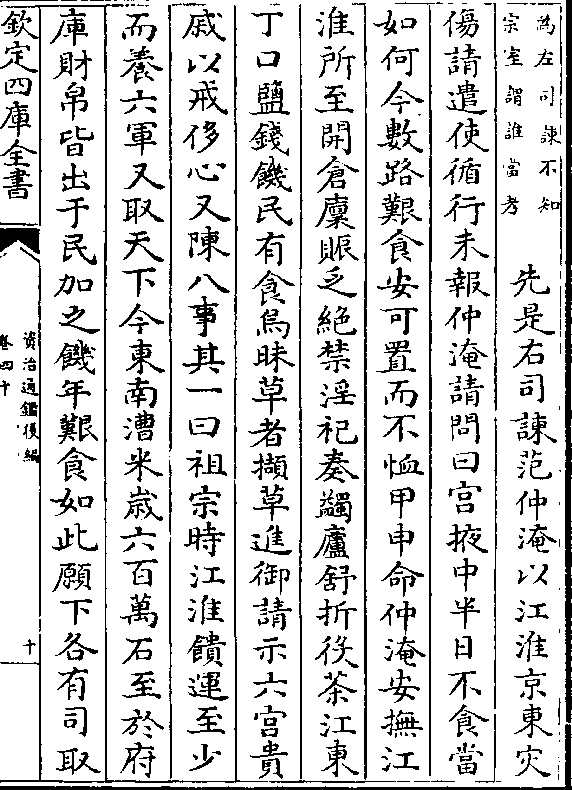 為左司諫不知
宗室謂誰當考
先是右司諫范仲淹以江淮京東灾
傷請遣使循行未報仲淹請問曰宫掖中半日不食當
如何今數路艱食安可置而不恤甲申命仲淹安撫江
淮所至開倉廪賑乏絶禁淫祀奏蠲廬舒折役茶江東
丁口鹽錢饑民有食烏昧草者擷草進御請示六宫貴
戚以戒侈心又陳八事其一曰祖宗時江淮饋運至少
而養六軍又取天下今東南漕米歳六百萬石至於府
庫財帛皆出于民加之饑年艱食如此願下各有司取
欽定四庫全書
資治通鑑後編
卷四十
十